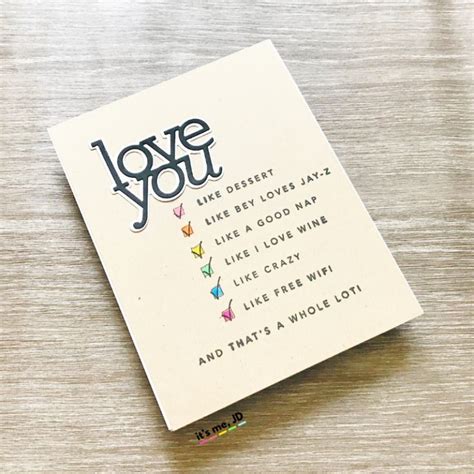 love
you
LIKE DESSERT
LIKE BEY LOVES JAY-Z
LIKE A GOOD NAP
LIKE I LOVE WINE
LIKE CRAZY
LIKE FREE WIFI
AND THAT'S A WHOLE LOT!
it's me, JD